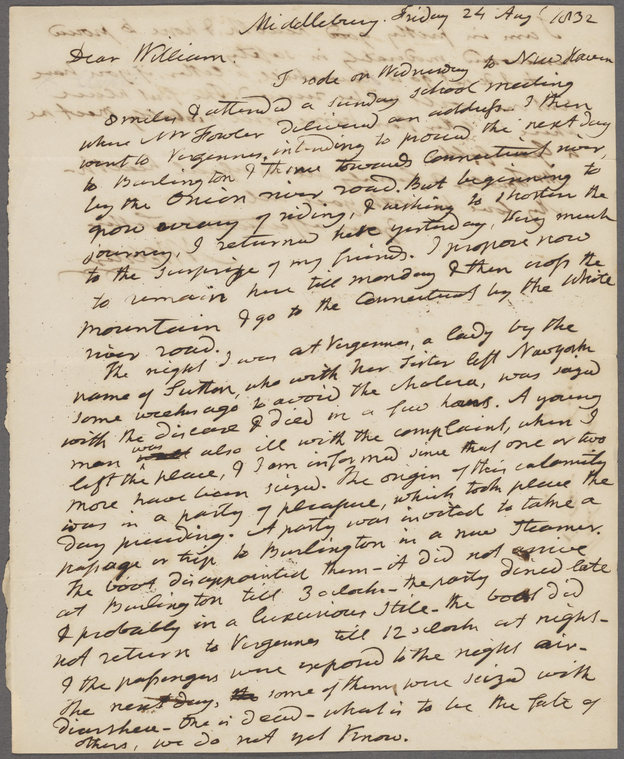 Middlebury. Friday 24 Augt 1832
Dear William.
I rode on Wednesday to New Haven
& attended a sunday school meeting
where Mr Fowler delivered an address. I then
went to Vergennes, intending to proceed the next day
to Burlington & thence towards Connecticut river,
by the Onion river road. But beginning to
grow weary of riding, & wishing to shorten the
journey, I returned here yesterday, very much
to the surprize of my friends. I propose now
to remain here till monday & then cross the
mountain & go to the Connecticut by the White
river road.
The night I was at Vergennes, a lady by the
name of Sutton, who with her sister left Newyork
some weeks ago to avoid the cholera, was seized
with the disease & died in a few hours. A young
man was also ill with the complaint, when I
left the place, & I am informed since that one or two
more have been seized. The origin of this calamity
was in a party of pleasure, which took place the
day preceding. A party was invited to take a
passage or trip to Burlington in a new steamer.
The boat disappointed them - it did not arrive
at Burlington till 3 oclock - the party dined late
& probably in a luxurious stile - the boat did
not return to Vergennes till 12 oclock at night -
& the passengers were exposed to the night air -
The next day, some of them were seized with
diarrhea - One is dead - what is to be the fate of
others, we do not yet know.